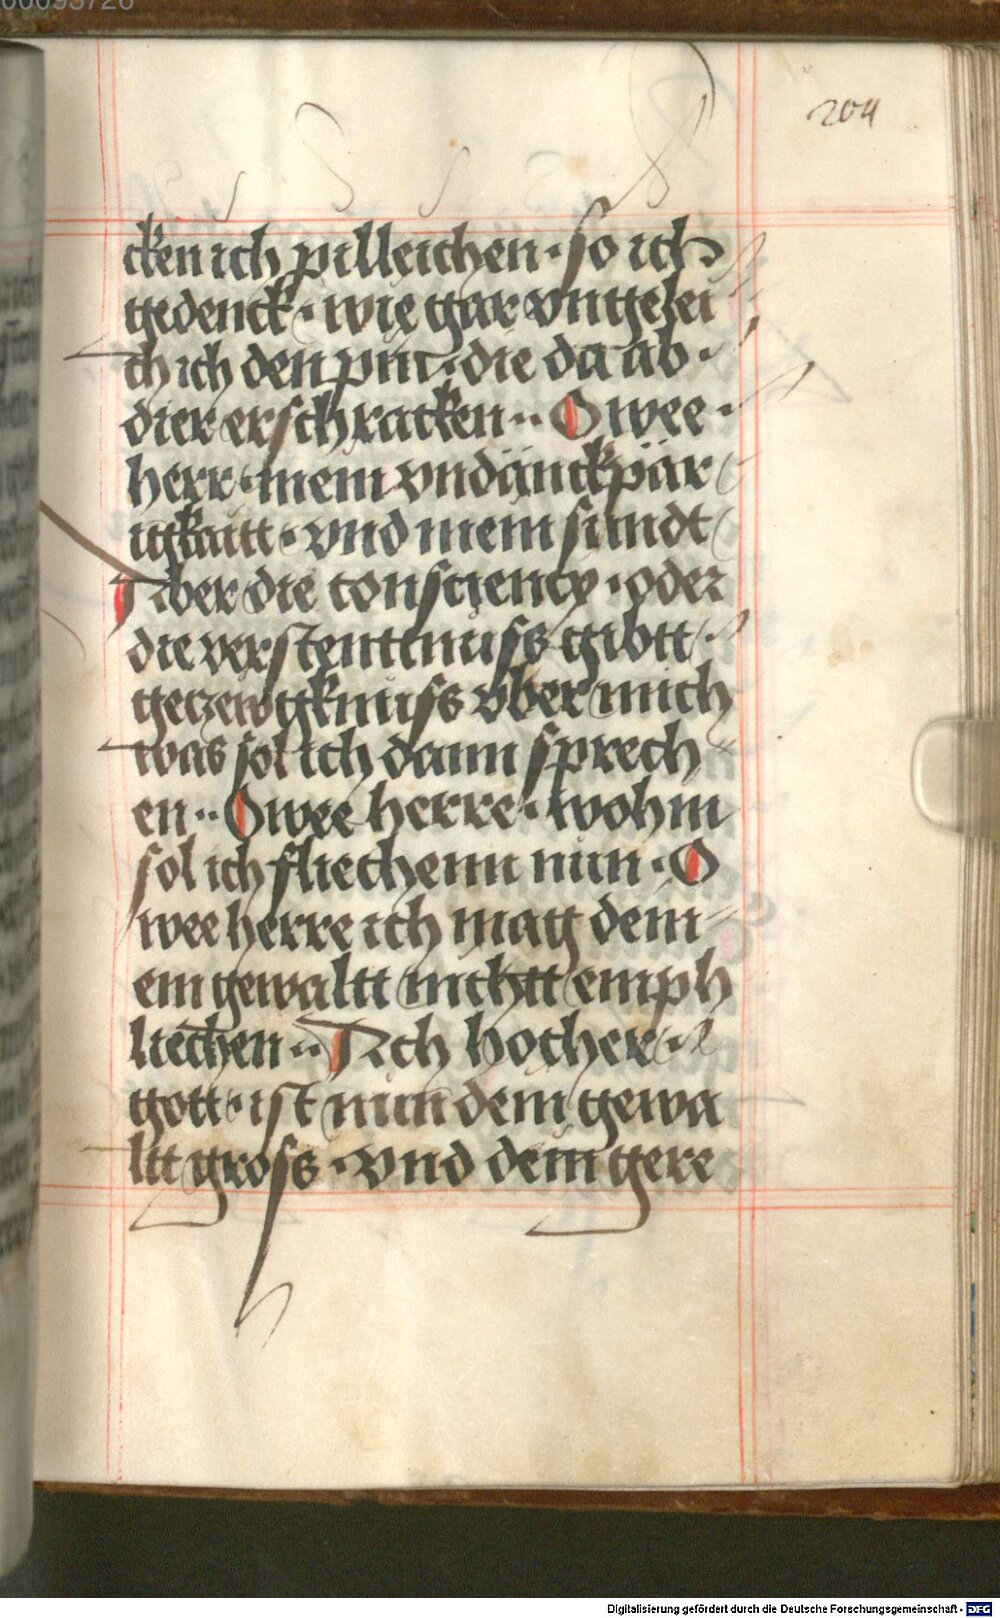 00093726
204
cken ich pilleichen · so ich
gedenck · wie gar vngelei
ch ich den pin · die da ab ·
dier erschracken ·· O wee ·
herr · mein vndänckpär
igkaitt · vnd mein sündt
Aber die consciency · oder
die verstenttnuiss gibtt ·
getzewgknuiss vber mich
was sol ich dann sprech
en ·· Owee herre · wohin
sol ich fliechenn nun · O
wee herre ich mag dein
em gewaltt nichtt emph
liechen ·· Ach hocher ·
gott · ist nun dein gewa
ltt gross · vnd dein gere
Digitalisierung gefördert durch die Deutsche Forschungsgemeinschaft - DFG